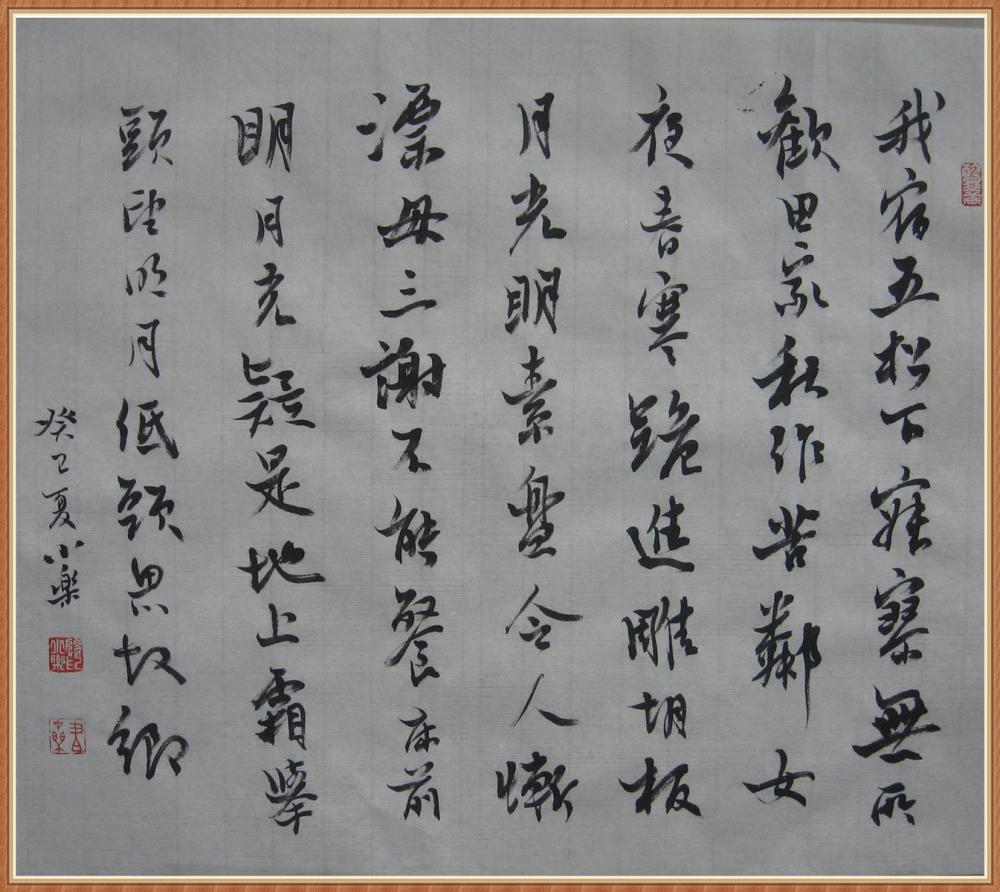 我宿五松下寂寥無所
歡田家秋作苦鄰女
夜舂寒跪進雕胡板
月光明素盤令人慚
漂母三謝不能餐床前
明月光疑是地上霜舉
頭望明月低頭思故鄉
癸巳夏小樂